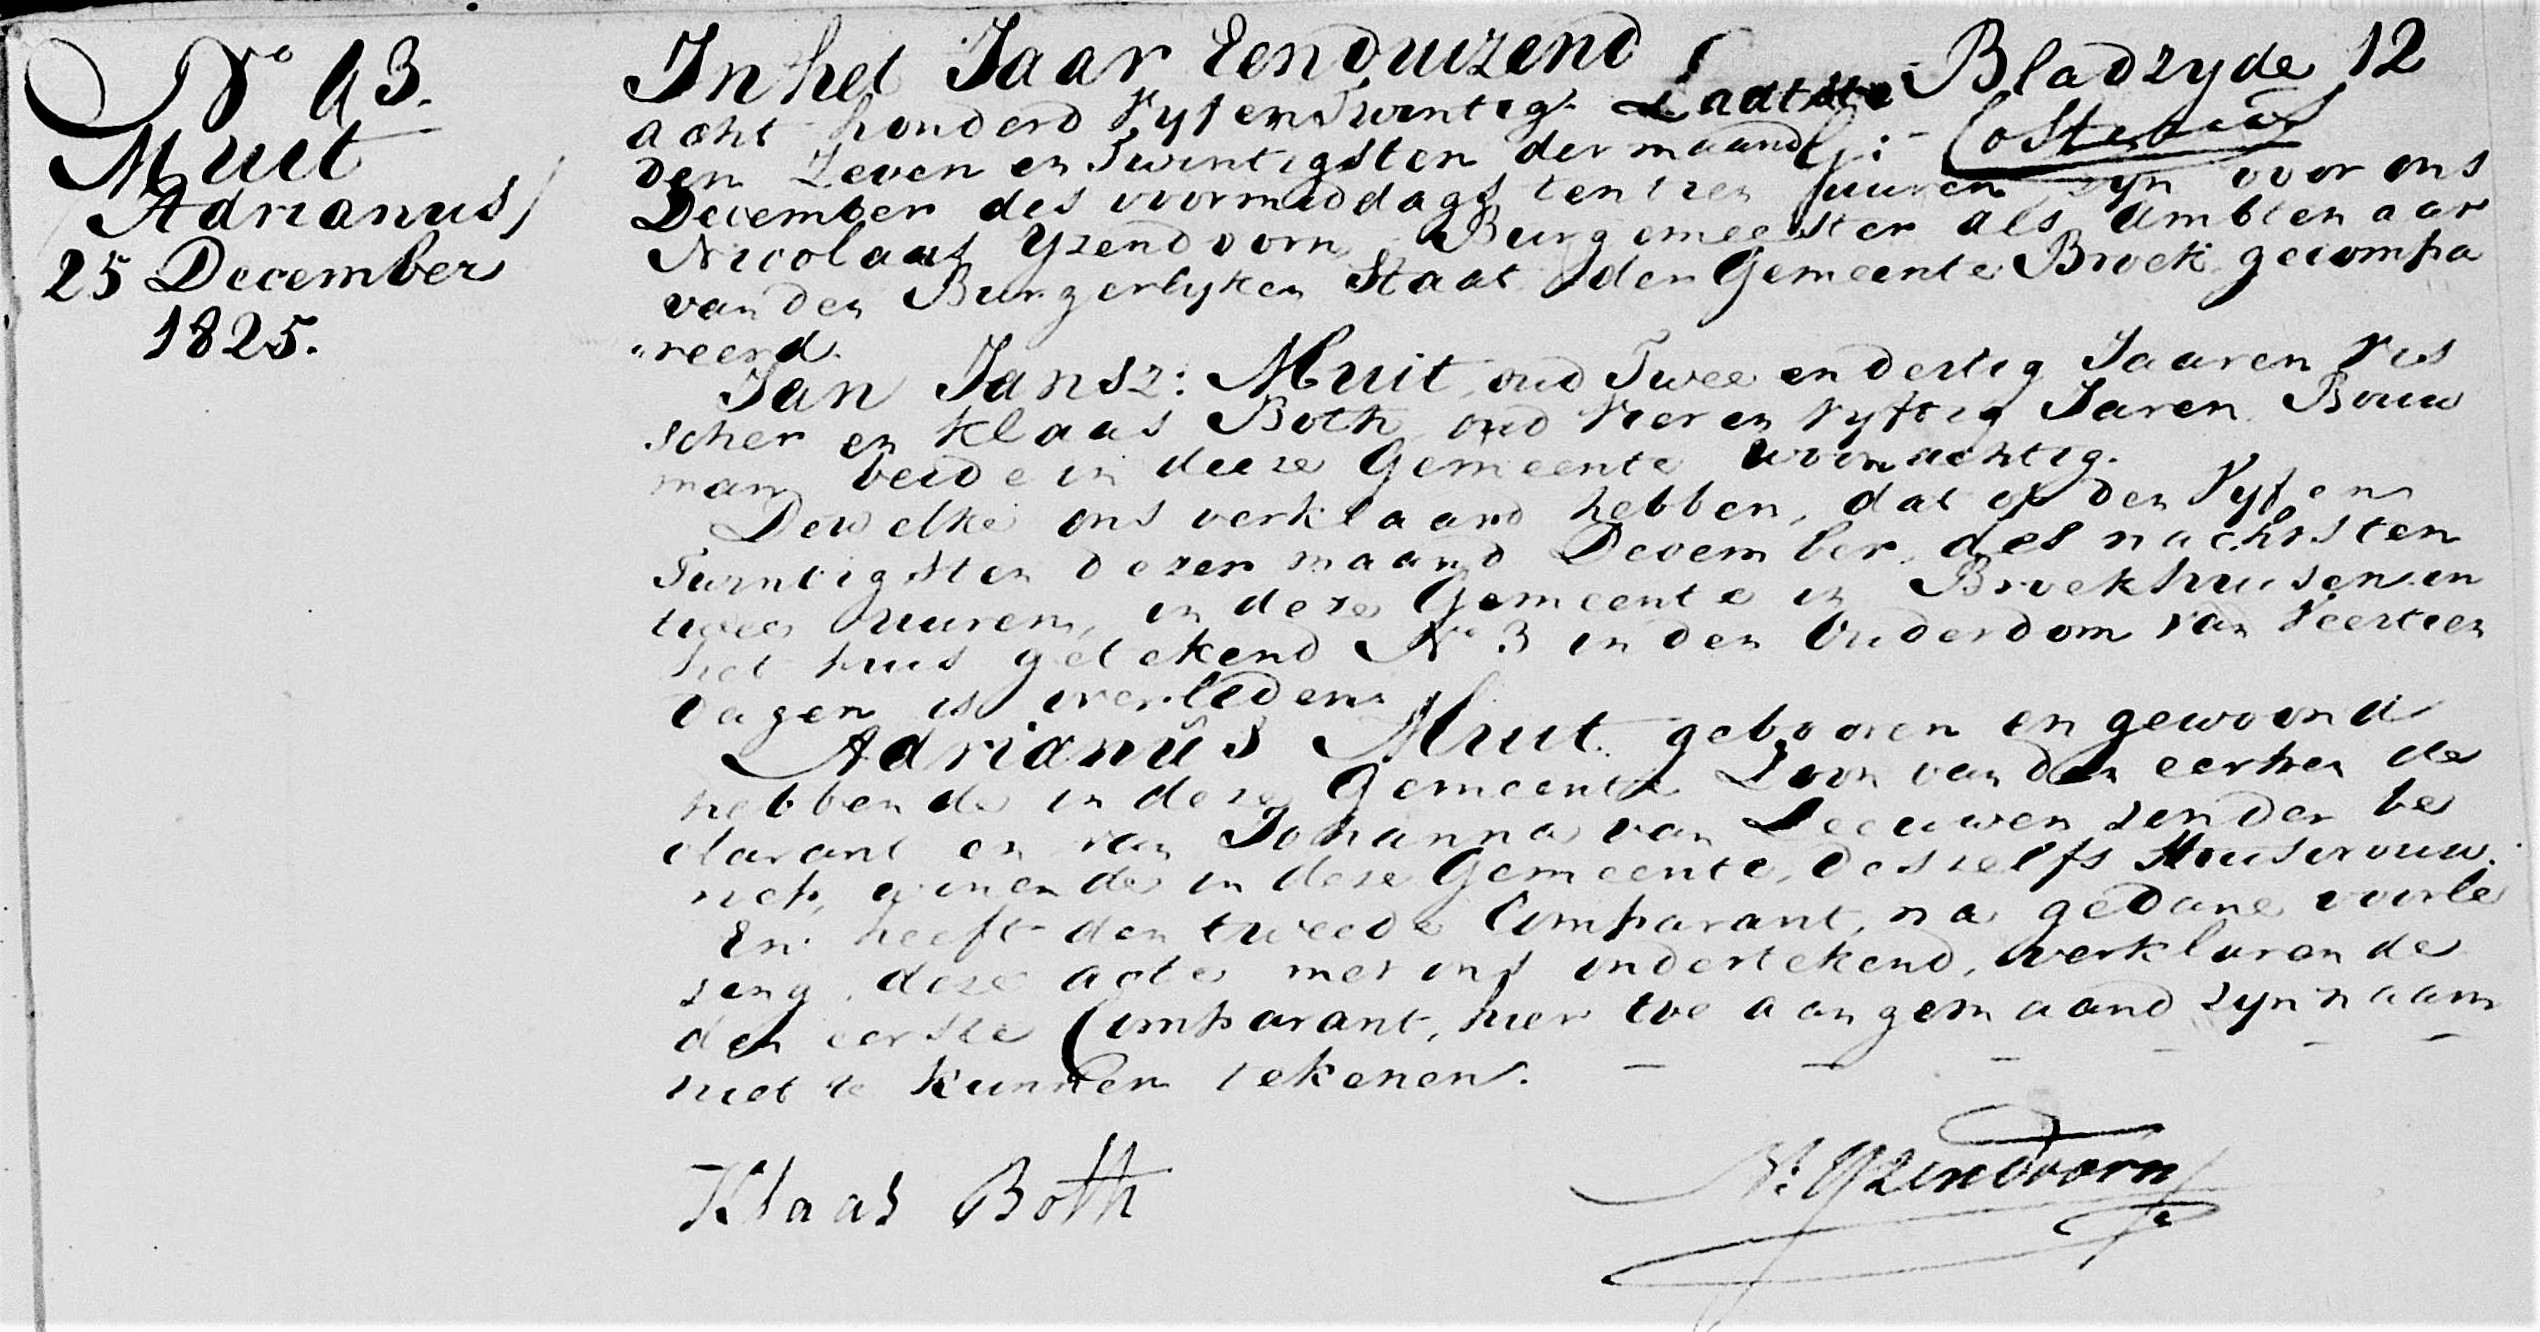 No 43.
Muit
Adrianus
25 December
1825.
In het Jaar Eenduizend
Laatste Bladzyde 12
acht honderd Vyf en Twintig
den Zeven en Twintigsten der maand
December des voormiddags ten tien uuren zyn voor ons
Nicolaas Yzendoorn, Burgemeester als Ambtenaar
van den Burgerlyken Staat der Gemeente Broek gecompa
"reerd.
Jan Jansz: Muit, oud Twee en dertig Jaaren Vis
scher en Klaas Both oud Vier en Vyftig Jaren Bouw
man beide in deeze Gemeente woonachtig.
Dewelke ons verklaard hebben, dat op den Vyf en
Twintigsten dezer maand December des nachts ten
twee uuren, in deze Gemeente in Broekhuisen in
het huis getekend No 3 in den Ouderdom van Veertien
dagen is overleden
Adrianus Muit. gebooren en gewoond
hebbende in deze Gemeente Zoon van den eersten de
clarant en van Johanna van Leeuwen zonder be
roep, wonende in deze Gemeente, deszelfs Huisvrouw.
En heeft den tweede Comparant, na gedane voorle
zing, deze acte met ons ondertekend, verklarende
den eerste Comparant, hier toe aangemaand zyn naam
niet te kunnen tekenen.
Klaas Both
N: Yzendoorn